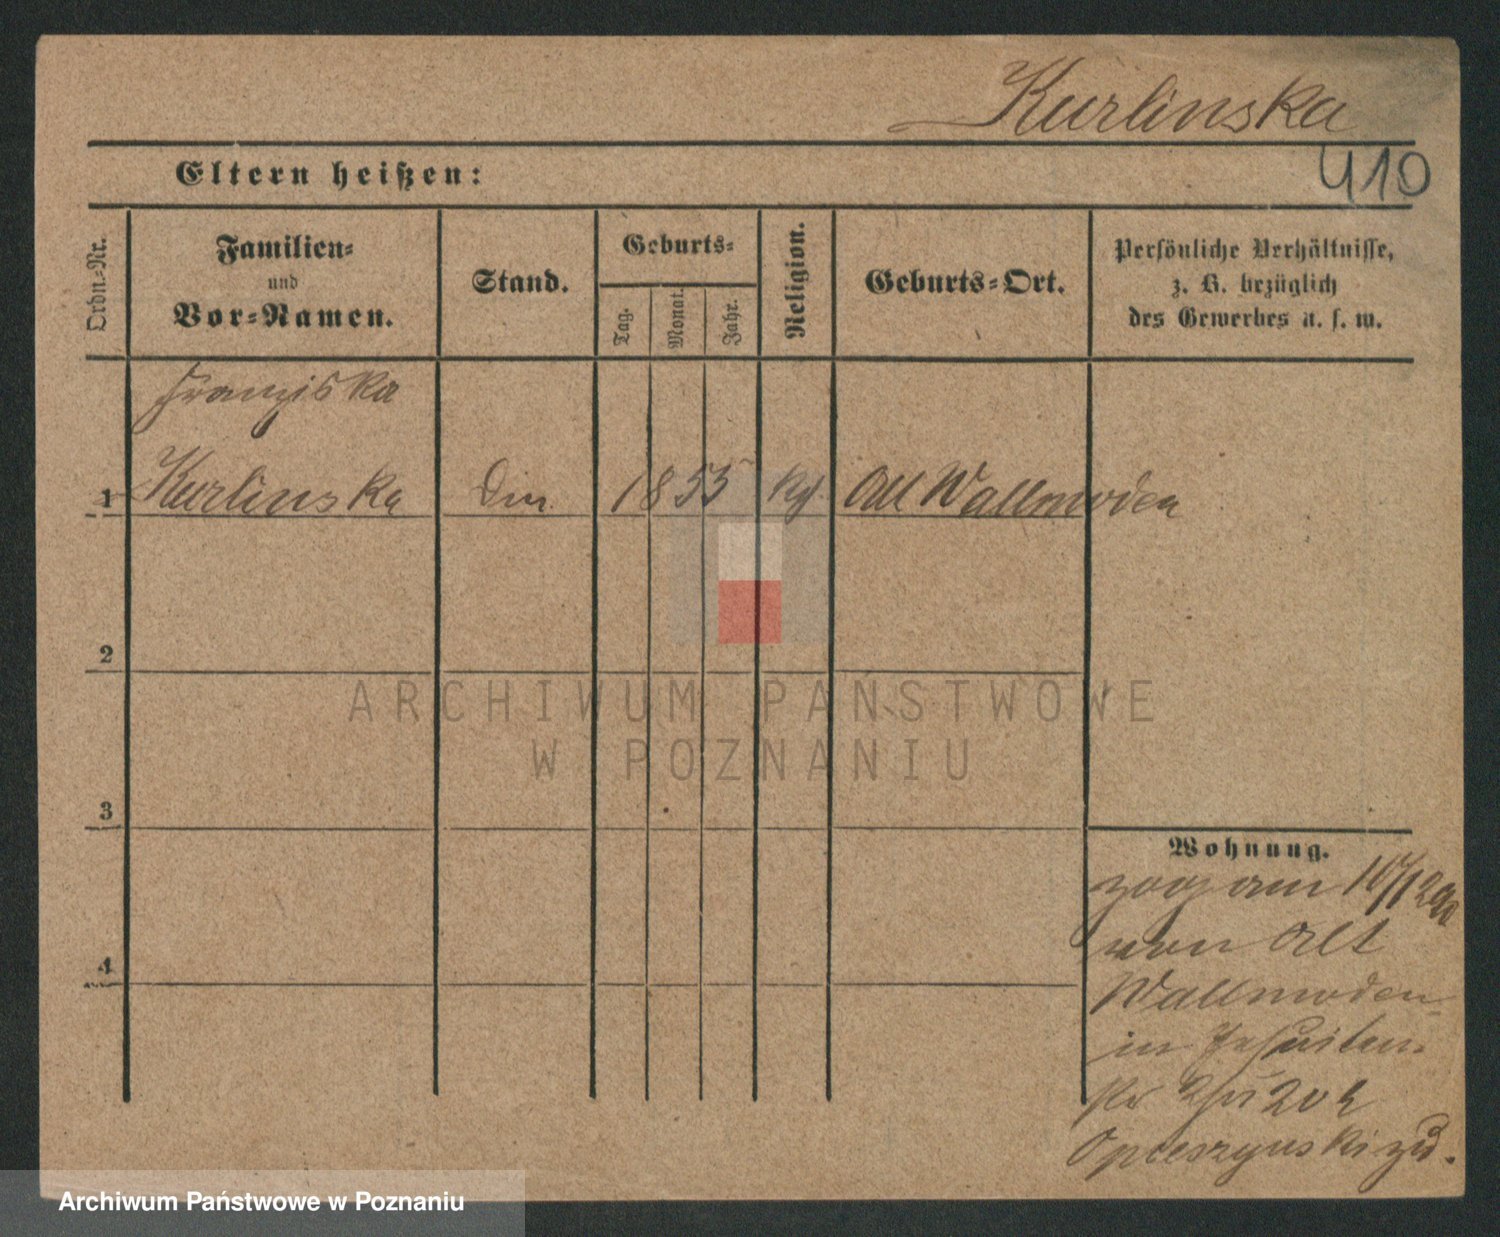 Kurlinska
410
Eltern heißen:
Ordn.-Nr.
Familien-
und
Vor-Namen.
Stand.
Geburts-
Tag.
Monat.
Jahr.
Religion.
Geburts-Ort.
Persönliche Verhältnisse,
z. B. bezüglich
des Gewerbes u. s. w.
Franziska
1 Kurlinska Din 1853 Kg Alt Wallmoden
2
3
4
Wohnung.
zog am
von Alt
Wallmoden
in Jesuiten
zu.
ARCHIWUM PAŃSTWOWE
W POZNANIU
Archiwum Państwowe w Poznaniu